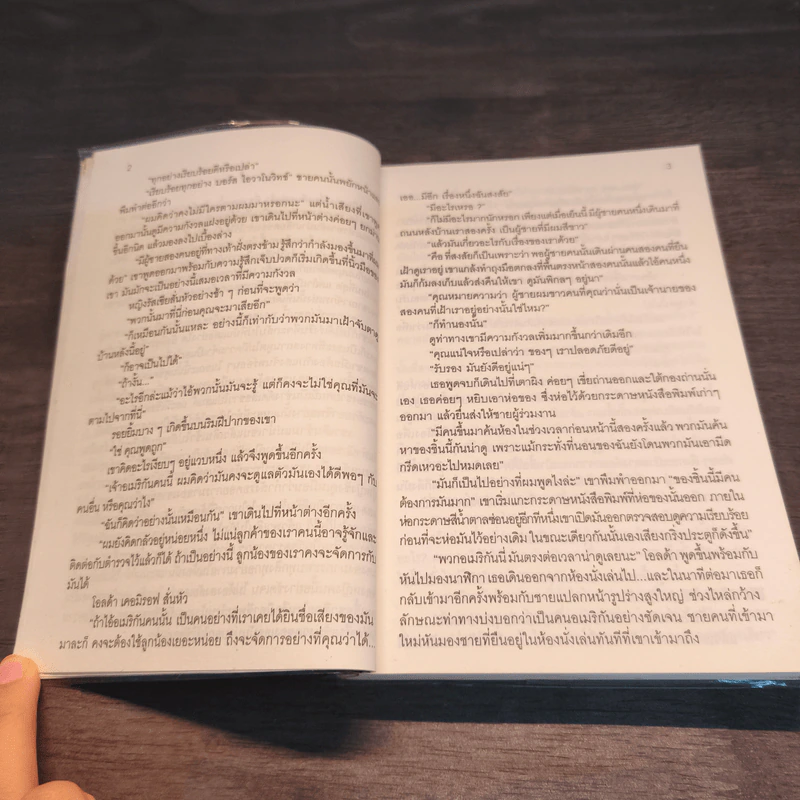 2
"ทุกอย่างเรียบร้อยดีหรือเปล่า"
"เรียบร้อยทุกอย่าง บอริส ไอวาโนวิทช์" ชายคนนั้นพยักหน้า
พึมพำต่ออีกว่า
"ผมคิดว่าคงไม่มีใครตามผมมาหรอกนะ" แต่น้ำเสียงที่เขาพูด
ออกมานั้นดูมีความกังวลแฝงอยู่ด้วย เขาเดินไปที่หน้าต่างค่อยๆ ยกม่าน
ขึ้นอีกนิด แล้วมองลงไปเบื้องล่าง
"มีผู้ชายสองคนอยู่ที่ทางเท้าฝั่งตรงข้าม รู้สึกว่ากำลังมองขึ้นมาที่
ด้วย" เขาพูดออกมาพร้อมกับความรู้สึกเจ็บปวดก็เริ่มเกิดขึ้นที่นิ้วมือของ
เขา มันมักจะเป็นอย่างนี้เสมอเวลาที่มีความกังวล
หญิงรัสเซียสั่นหัวอย่างช้า ๆ ก่อนที่จะพูดว่า
"พวกนั้นมาที่นี่ก่อนคุณจะมาเสียอีก"
"ก็เหมือนกันนั้นแหละ อย่างนี้ก็เท่ากับว่าพวกมันมาเฝ้าจับตาดู
บ้านหลังนี้อยู่"
"ก็อาจเป็นไปได้"
"ถ้างั้น..."
"อะไรอีกล่ะแม้ว่าไอ้พวกนั้นมันจะรู้ แต่ก็คงจะไม่ใช่คุณที่มันจะ
ตามไปจากที่นี่"
รอยยิ้มบาง ๆ เกิดขึ้นบนริมฝีปากของเขา
"ใช่ คุณพูดถูก"
เขาคิดอะไรเงียบๆ อยู่แวบหนึ่ง แล้วจึงพูดขึ้นอีกครั้ง
"เจ้าอเมริกันคนนี้ ผมคิดว่ามันคงจะดูแลตัวมันเองได้ดีพอๆ กับ
คนอื่น หรือคุณว่าไง"
"ฉันก็คิดว่าอย่างนั้นเหมือนกัน" เขาเดินไปที่หน้าต่างอีกครั้ง
"ผมยังคิดกลัวอยู่หน่อยหนึ่ง ไม่แน่ลูกค้าของเราคนนี้อาจรู้จักและ
ติดต่อกับตำรวจไว้แล้วก็ได้ ถ้าเป็นอย่างนี้ ลูกน้องของเราคงจะจัดการกับ
มันได้
โอลด้า เคอมิรอฟ สั่นหัว
"ถ้าไอ้อเมริกันคนนั้น เป็นคนอย่างที่เราเคยได้ยินชื่อเสียงของมัน
มาละก็ คงจะต้องใช้ลูกน้องเยอะหน่อย ถึงจะจัดการอย่างที่คุณว่าได้...
3
เออ...มีอีก เรื่องหนึ่งฉันสงสัย"
"มีอะไรเหรอ ?"
"ก็ไม่มีอะไรมากนักหรอก เพียงแต่เมื่อเย็นนี้ มีผู้ชายคนหนึ่งเดินมาที่
ถนนหลังบ้านเราสองครั้ง เป็นผู้ชายที่มีผมสีขาว"
"แล้วมันเกี่ยวอะไรกับเรื่องของเราด้วย"
"คือ ที่สงสัยก็เป็นเพราะว่า พอผู้ชายคนนั้นเดินผ่านคนสองคนที่ยืน
เฝ้าดูเราอยู่ เขาแกล้งทำถุงมือตกลงที่พื้นตรงหน้าสองคนนั้นแล้วไอ้คนหนึ่ง
มันก็ก้มลงเก็บแล้วส่งคืนให้เขา ดูมันพิกลๆ อยู่นา"
"คุณหมายความว่า ผู้ชายผมขาวคนที่คุณว่านั่นเป็นเจ้านายของ
สองคนที่เฝ้าเราอยู่อย่างนั้นใช่ไหม?"
"ก็ทำนองนั้น"
ดูท่าทางเขามีความกังวลเพิ่มมากขึ้นกว่าเดิมอีก
"คุณแน่ใจหรือเปล่าว่า ของๆ เราปลอดภัยดีอยู่"
"รับรอง มันยังดีอยู่แน่ๆ"
เธอพูดจบก็เดินไปที่เตาผิง ค่อยๆ เขี่ยถ่านออกและใต้กองถ่านนั้น
เอง เธอค่อยๆ หยิบเอาห่อของ ซึ่งห่อไว้ด้วยกระดาษหนังสือพิมพ์เก่าๆ
ออกมา แล้วยื่นส่งให้ชายผู้ร่วมงาน
"มีคนขึ้นมาค้นห้องในช่วงเวลาก่อนหน้านี้สองครั้งแล้ว พวกมันค้น
หาของชิ้นนี้กันน่าดู เพราะแม้กระทั่งที่นอนของฉันยังโดนพวกมันเอามีด
กรีดเหวอะไปหมดเลย"
"มันก็เป็นไปอย่างที่ผมพูดไงล่ะ" เขาพึมพำออกมา "ของชิ้นนี้มีคน
ต้องการมันมาก" เขาเริ่มแกะกระดาษหนังสือพิมพ์ที่ห่อของนั้นออก ภายใน
ห่อกระดาษสีน้ำตาลซ่อนอยู่อีกทีหนึ่งเขาเปิดมันออกตรวจสอบดูความเรียบร้อย
ก่อนที่จะห่อมันไว้อย่างเดิม ในขณะเดียวกันนั้นเองเสียงกริ่งประตูก็ดังขึ้น"
"พวกอเมริกันนี่ มันตรงต่อเวลาน่าดูเลยนะ" โอลด้า พูดขึ้นพร้อมกับ
หันไปมองนาฬิกา เธอเดินออกจากห้องนั่งเล่นไป...และในนาทีต่อมาเธอก็
กลับเข้ามาอีกครั้งพร้อมกับชายแปลกหน้ารูปร่างสูงใหญ่ ช่วงไหล่กว้าง
ลักษณะท่าทางบ่งบอกว่าเป็นคนอเมริกันอย่างชัดเจน ชายคนที่เข้ามา
ใหม่หันมองชายที่ยืนอยู่ในห้องนั่งเล่นทันทีที่เขาเข้ามาถึง